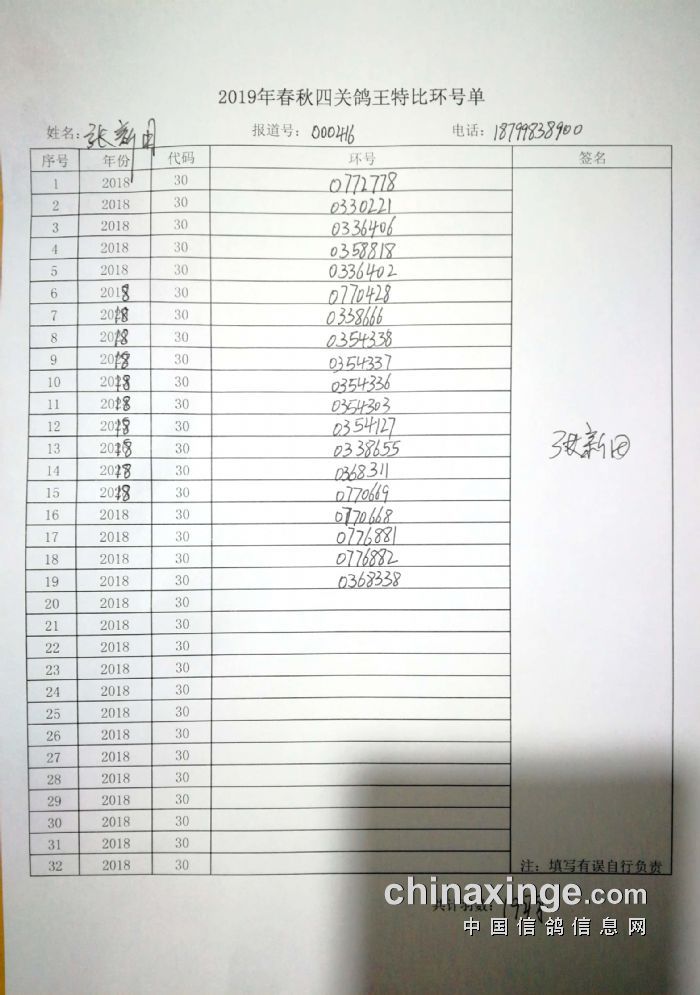 2019年春秋四关鸽王特比环号单
姓名: 张新田 报道号: 000416 电话: 18799838900
序号 年份 代码 环号 签名
1 2018 30 0772778
2 2018 30 0330221
3 2018 30 0336406
4 2018 30 0358818
5 2018 30 0336402
6 2018 30 0770428
7 2018 30 0338666
8 2018 30 0354338
9 2018 30 0354337
10 2018 30 0354336
11 2018 30 0354303
12 2018 30 0354127
13 2018 30 0338655
张新田
14 2018 30 0368311
15 2018 30 0770669
16 2018 30 0770668
17 2018 30 0776881
18 2018 30 0776882
19 2018 30 0368338
20 2018 30
21 2018 30
22 2018 30
23 2018 30
24 2018 30
25 2018 30
26 2018 30
27 2018 30
28 2018 30
29 2018 30
30 2018 30
31 2018 30
32 2018 30 注: 填写有误自行负责
chinaxinge.com
共计羽数: 19羽
中国信鸽信息网